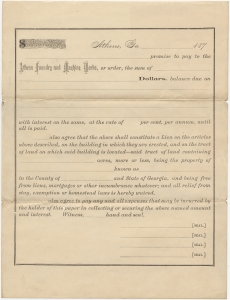 $ Athens, Ga. 187
promise to pay to the
Athens Foundry and Machine Works, or order, the sum of
Dollars, balance due on
with interest on the same, at the rate of per cent, per annum, until
all is paid.
also agree that the above shall constitute a Lien on the articles
above described, on the building in which they are erected, and on the tract
of land on which said building is located—said tract of land containing
acres, more or less, being the property of
known as
in the County of and State of Georgia, and being free
from liens, mortgages or other incumbrances whatever; and all relief from
stay, exemption or homestead laws is hereby waived.
also agree to pay any and all expenses that may be incurred by
the holder of this paper in collecting or securing the above named amount
and interest. Witness, hand and seal.
[SEAL.]
[SEAL.]
[SEAL.]
[SEAL.]